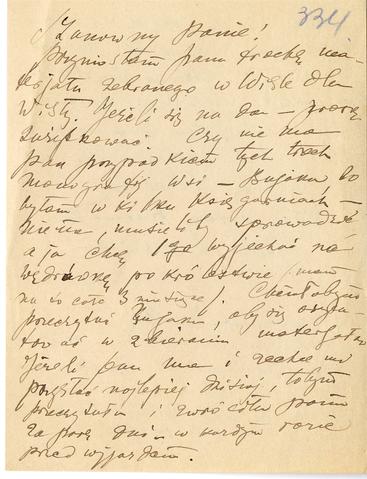 334
Szanowny Panie!
Przyniosłam panu trochę ma-
teriału zebranego w Wiśle dla
Wisły. Jeżeli się na da – proszę
zużytkować. Czy nie ma
pan przypadkiem tych trzech
monografij wsi – Bugaku, bo
byłam w kilku księgarniach –
nie ma, musieliby sprowadzać
a ja chcę 1go wyjechać na
wędrówkę po królestwie (mam
na to całe 3 miesiące). Chciałabym
przeczytać Bugaku, aby się
w zbieraniu materyałów
Jeżeli pan ma i zechce mi
pożyczać najlepiej dzisiaj, tobym
przeczytała i zwróciła panu
za parę dni – w każdym razie
przed wyjazdem.